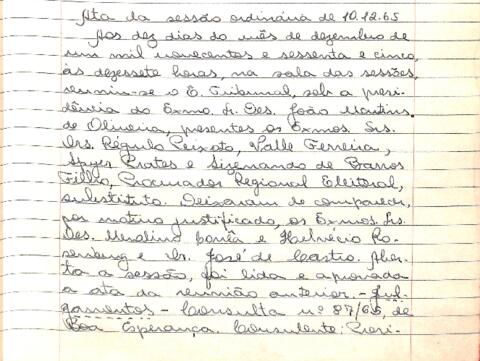 Ata da sessão ordinária de 10.12.65
Aos dez dias do mês de dezembro de
um mil novecentos e sessenta e cinco,
às dezessete horas, na sala das sessões,
reuniu-se o E. Tribunal, sob a presi-
dência do Exmo. Sr. Des. João Martins
de Oliveira, presentes os Exmos. Srs.
Drs. Régulo Peixoto, Valle Ferreira,
Ayres Prates e Sizenando de Barros
Filho, Procurador Regional Eleitoral,
substituto. Deixaram de comparecer,
por motivo justificado, os Exmos. Srs.
Des. Merolino Corrêa e Helvécio Ro-
senburg e Dr. José de Castro. Aber-
ta a sessão, foi lida e aprovada
a ata da reunião anterior. - Jul-
gamentos - Consulta nº 87/65, de
Boa Esperança. Consulente: Presi-